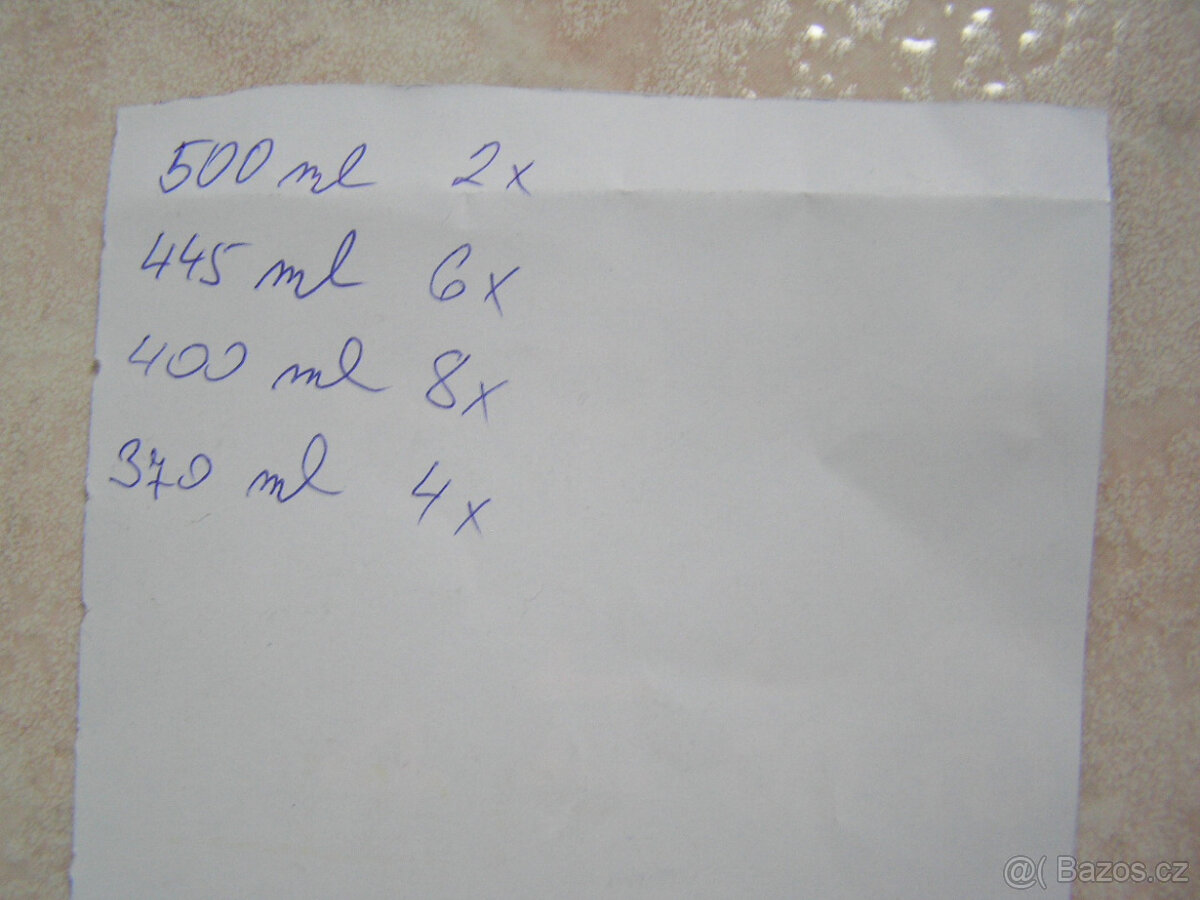 500 ml 2x
445 ml 6x
400 ml 8x
370 ml 4x
@( Bazos.cz